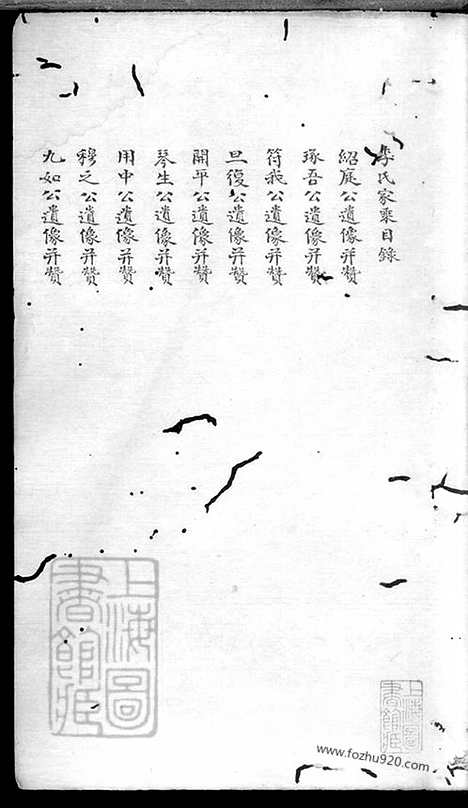 李氏家乘目錄
紹庭公遺像并贊
琢吾公遺像并贊
符我公遺像并贊
旦復公遺像并贊
開平公遺像并贊
琴生公遺像并贊
用中公遺像并贊
穆之公遺像并贊
九如公遺像并贊
上海圖書館藏
上海圖書館藏
www.fozhu920.com